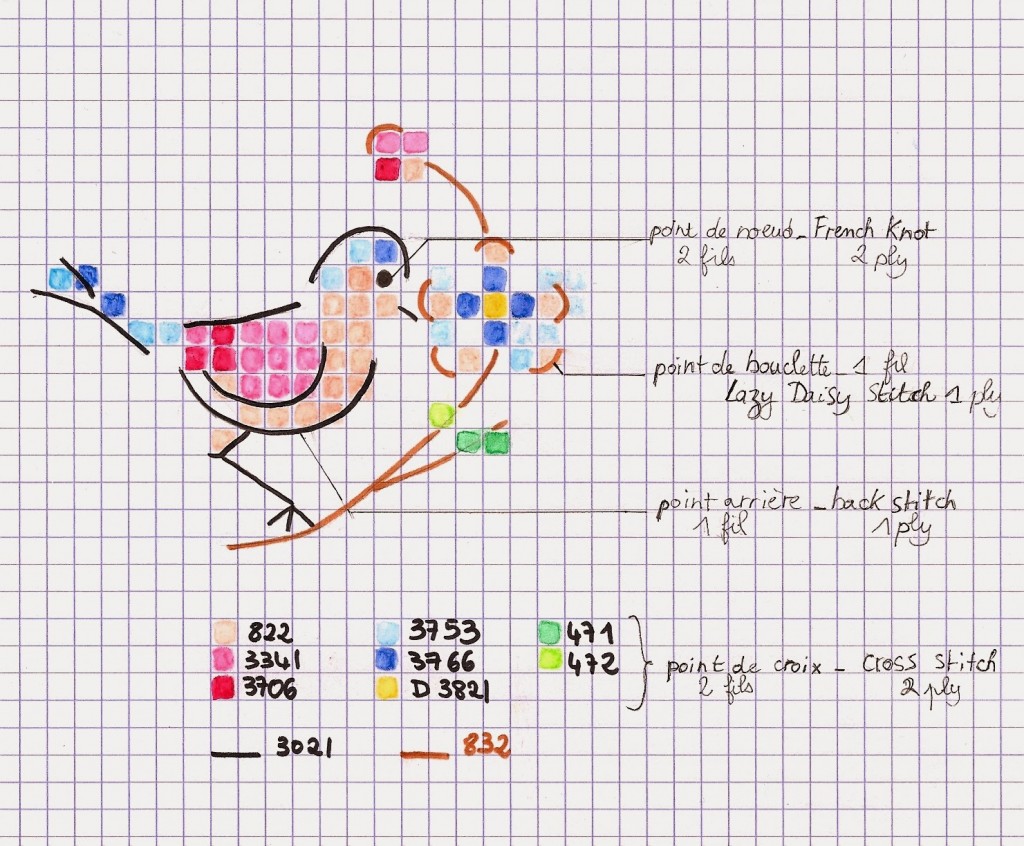 point de noeud_ French Knot
2 fils 2 ply
point de bouclette_ 1 fil
Lazy Daisy Stitch 1 ply
point arrière _ back stitch
1 fil 1 ply
822 3753 471
3341 3766 472
3706 D 3821
point de croix _ cross stitch
2 fils 2 ply
3021 832